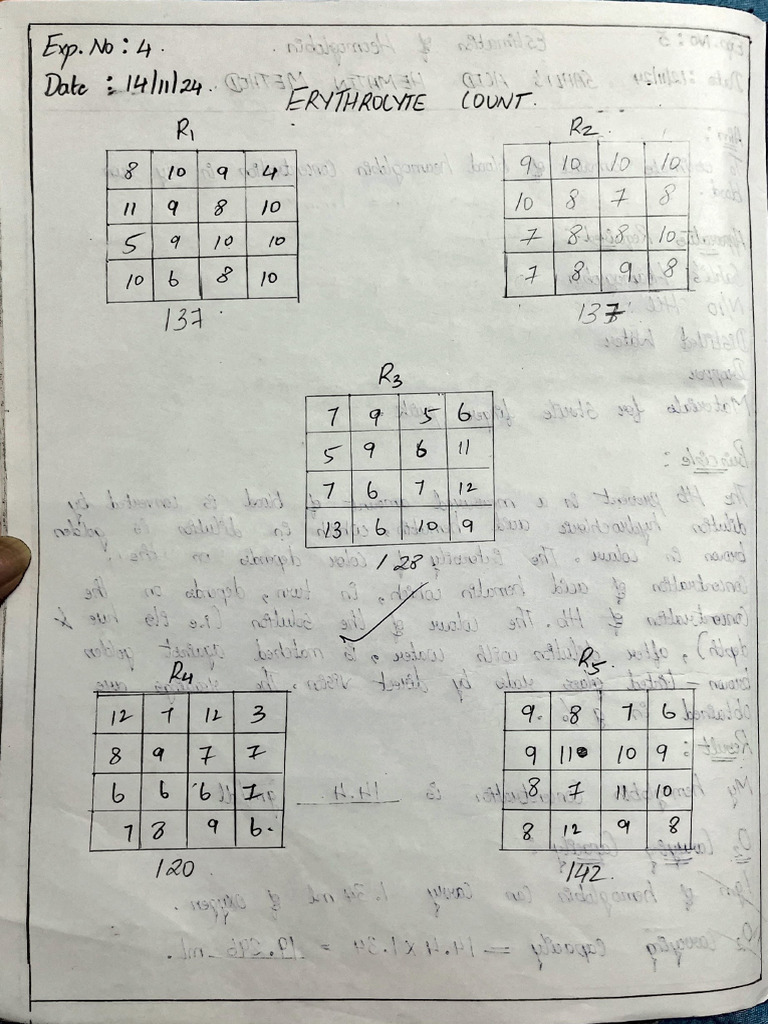 Exp. No : 4.
Date : 14/11/24.
ERYTHROLYTE COUNT.
R1
8 10 9 4
11 9 8 10
5 9 10 10
10 6 8 10
137
R2
9 10 10 10
10 8 7 8
7 8 8 10
7 8 9 8
137
R3
7 9 5 6
5 9 6 11
7 6 7 12
13 6 10 9
128
R4
12 7 12 3
8 9 7 7
6 6 6 7
7 8 9 6
120
R5
9 8 7 6
9 11 10 9
8 7 11 10
8 12 9 8
142